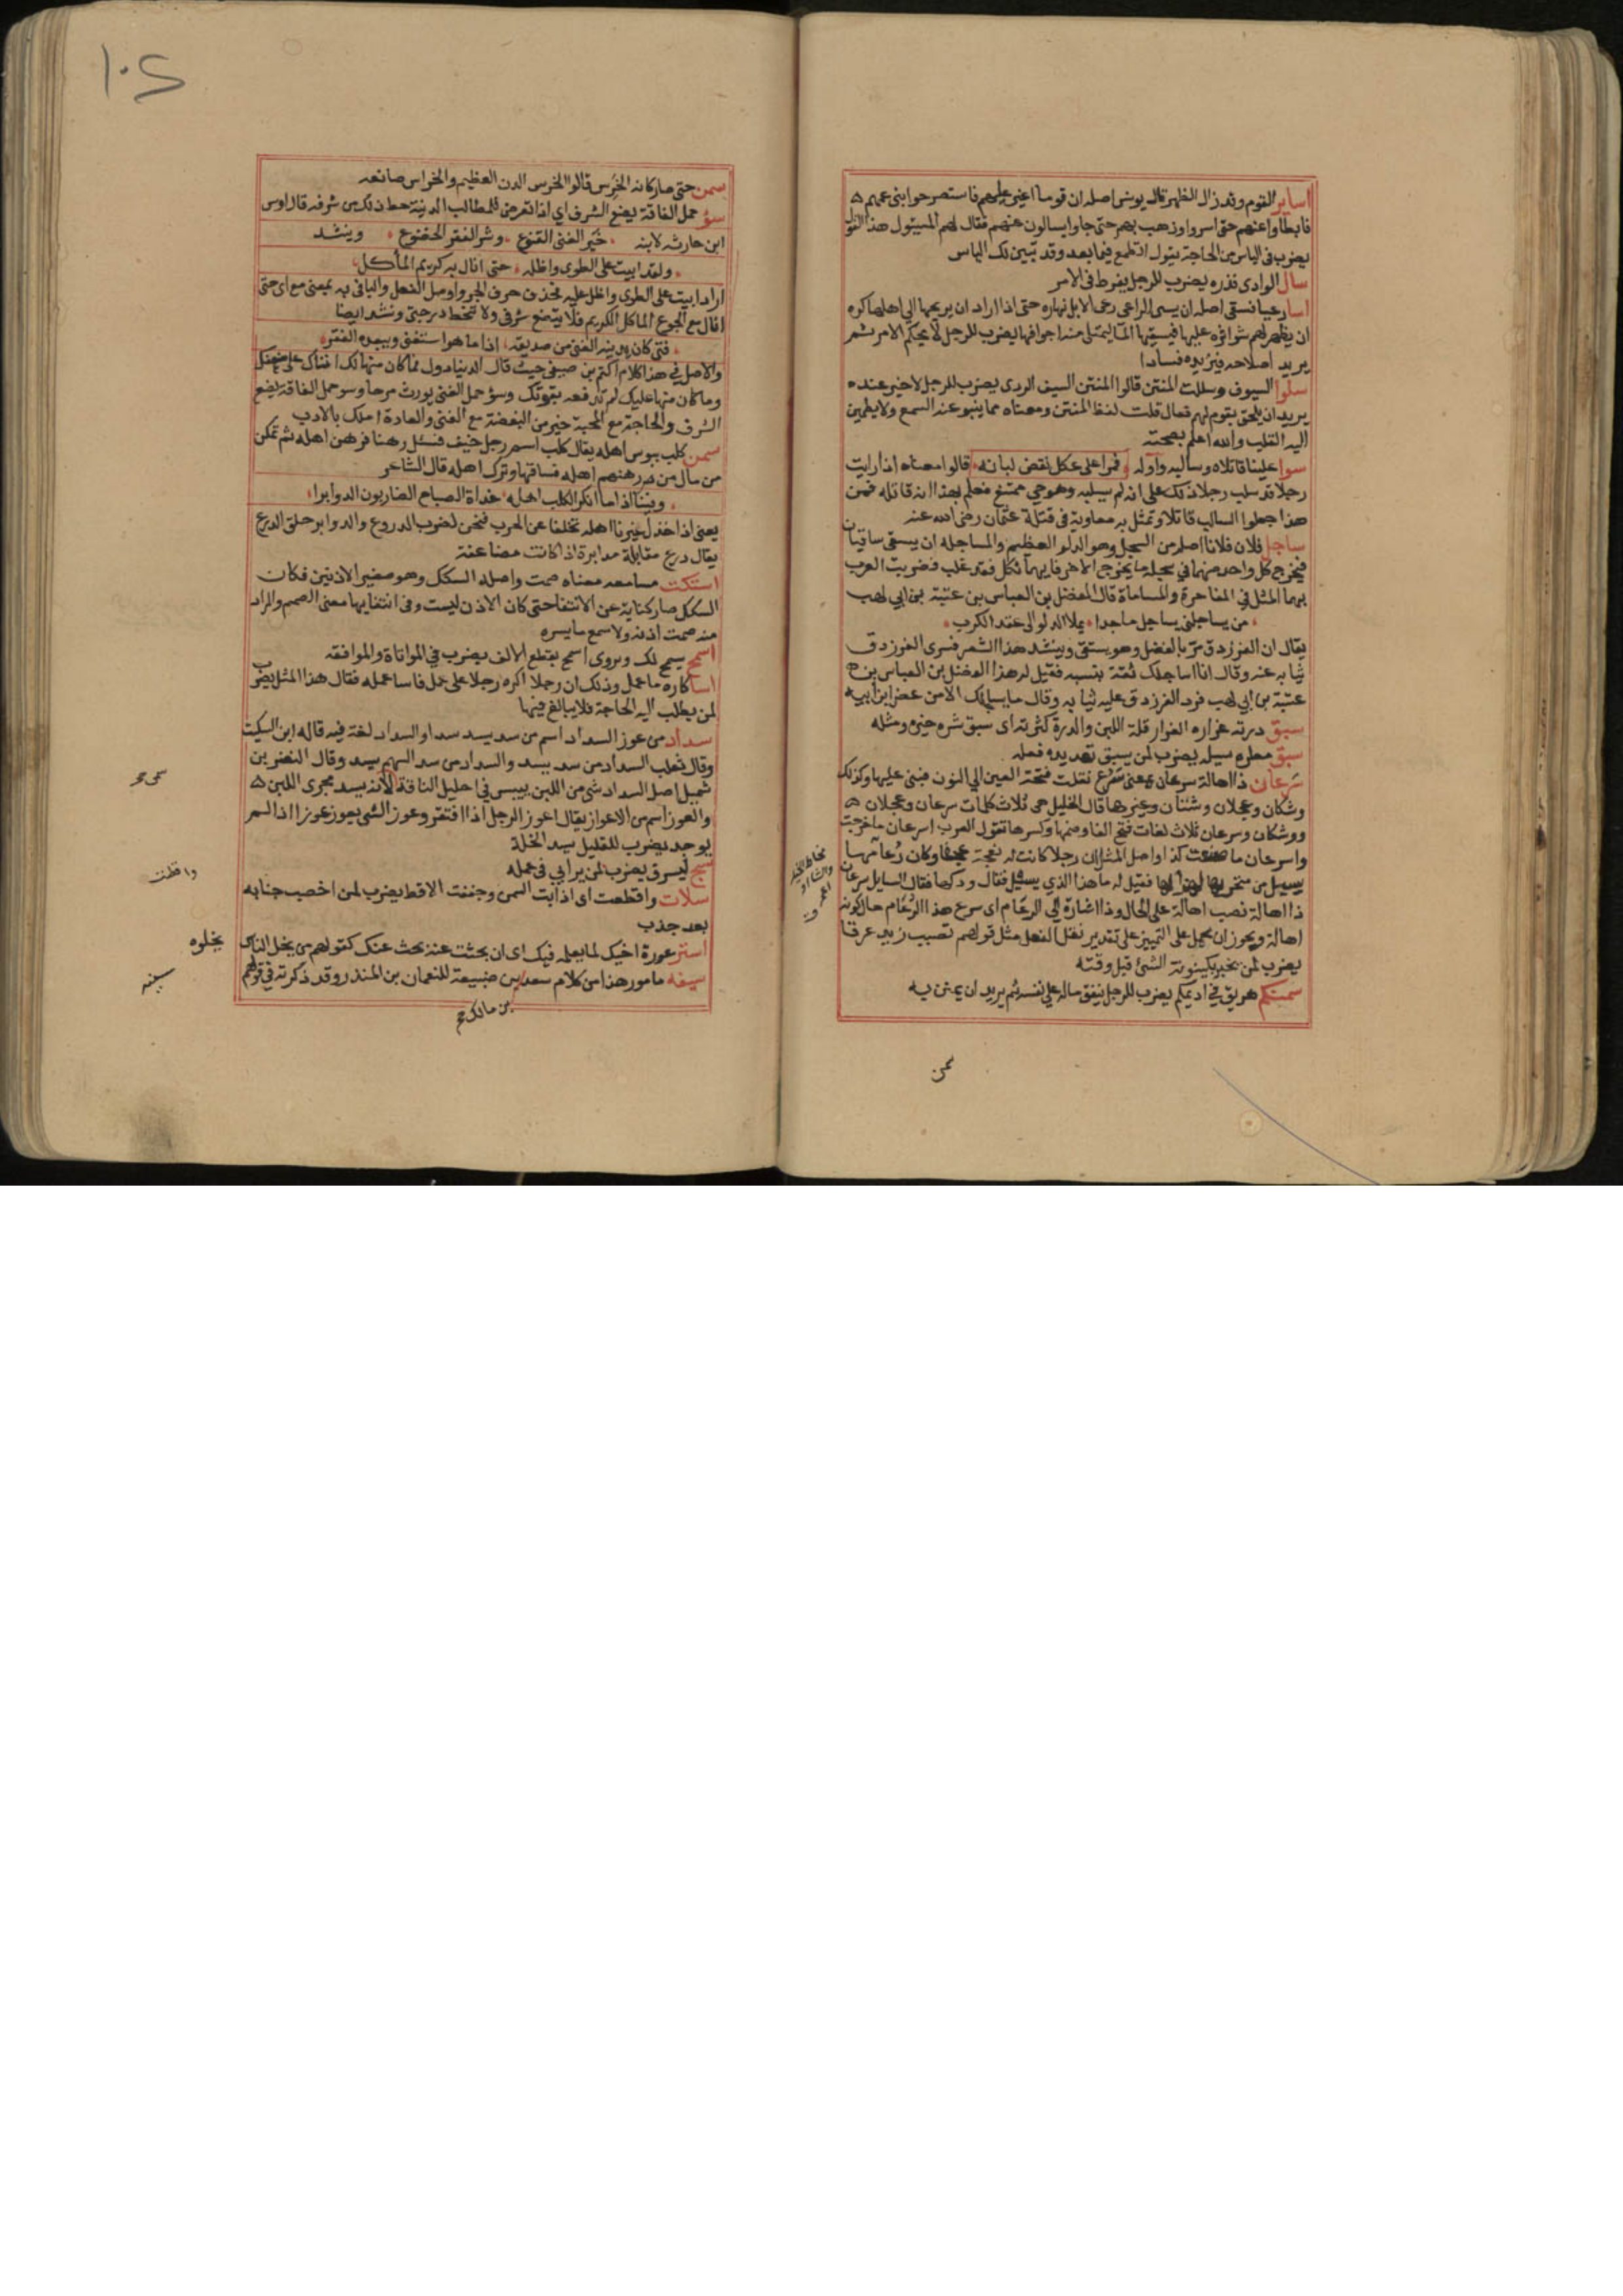 اساير القوم وقد زال الظهر قال يونس اصله ان قوما اغير عليهم فاستصرخوا بنى عمهم
فابطاوا عنهم حتى اسروا وذهب بهم حتى جاوا يسالون عنهم فقال لهم المسئول هذا القول
يضرب فى الياس من الحاجة يقول اتطمع فيما بعد وقد تبين لك الياس
سال الوادى فذره يضرب للرجل يفرط فى الامر
اسا رعيا فسقى اصله ان يسى الراعى رعى الابل نهاره حتى اذا اراد ان يريحها الى اهلها كره
ان يظهر لهم سوا اثره عليها فيسقيها الما ليمتلى منه اجوافها يضرب للرجل لا يحكم الامر ثم
يريد اصلاحه فيزيده فسادا
سلوا السيوف وسللت المنتن قالوا المنتن السيف الردى يضرب للرجل لا خير عنده
يريد ان يلحق بقوم لهم فعال قلت لفظ المنتن ومعناه مما ينبو عنه السمع ولا يطمين
اليه القلب والله اعلم بصحته
سوا علينا قاتلاه وسالبه واوله فمرا على عكل نقض لبانه قالوا معناه اذا رايت
رجلا قد سلب رجلا ذلك على انه لم يسلبه وهو حى ممتنع فعلم بهذا انه قاتله فمن
هذا جعلوا السالب قاتلا وتمثل به معاوية فى قتلة عثمان رضى الله عنه
ساجل فلان فلانا اصله من السجل وهو الدلو العظيم والمساجله ان يستقى ساقيان
فيخرج كل واحد منهما فى سجله ما يخرج الاخر فايهما نكل فقد غلب فضربت العرب
بهما المثل فى المفاخرة والمساماة قال الفضل بن العباس بن عتبة بن ابى لهب
من يساجلنى يساجل ماجدا يملا الدلو الى عقد الكرب
يقال ان الفرزدق مر بالفضل وهو يستقى وينشد هذا الشعر فسرى الفرزدق
ثيابه عنه وقال انا اساجلك ثقة بنسبه فقيل له هذا الفضل بن العباس بن
عتبة بن ابى لهب فرد الفرزدق عليه ثيابه وقال ما يساجلك الا من عض اير ابيه
سبق درته غراره الغرار قلة اللبن والدرة كثرته اى سبق شره خيره ومثله
سبق مطره سيله يضرب لمن يسبق تهديده فعله
سرعان ذا اهالة سرعان بمعنى سرع نقلت فتحة العين الى النون فبنى عليها وكذلك
وشكان وعجلان وشتان وغيرها قال الخليل هى ثلاث كلمات سرعان وعجلان
ووشكان وسرعان ثلاث لغات فتح الفا وضمها وكسرها تقول العرب لسرعان ما خرجت
واسرعان ما صنعت كذا واصل المثل ان رجلا كانت له نعجة عجفا وكان رغامها
يسيل من منخريها لهزالها فقيل له ما هذا الذي يسيل فقال ودكها فقال السايل سرعان
ذا اهالة نصب اهالة على الحال وذا اشارة الى الرغام اى سرع هذا الرغام حال كونه
اهالة ويجوز ان يحمل على التمييز على تقدير نقل الفعل مثل قولهم تصبب زيد عرقا
يضرب لمن يخبر بكينونة الشئ قبل وقته
سمنكم هريق فى اديمكم يضرب للرجل ينفق ماله على نفسه ثم يريد ان يمتن به
سمن
سمن حتى صار كانه الخرس قالوا الخرس الدن العظيم والخراس صانعه
سؤ حمل الفاقة يضع الشرف اى اذا تعرض للمطالب الدنية حط ذلك من شرفه قال اوس
ابن حارثه لابنه خير الغنى القنوع وشر الفقر الخضوع وينشد
ولقد ابيت على الطوى واظله حتى انال به كريم الماكل
اراد ابيت على الطوى واظل عليه فحذف حرف الجر واوصل الفعل والبا فى به بمعنى مع اى حتى
انال مع الجوع الماكل الكريم فلا يتضع شرفى ولا تنحط درجتى وينشد ايضا
فتى كان يدنيه الغنى من صديقه اذا ما هو استغنى ويبعده الفقر
والاصل فى هذا كلام اكثم بن صيفى حيث قال الدنيا دول فما كان منها لك اتاك على ضعفك
وما كان منها عليك لم تدفعه بقوتك وسؤ حمل الغنى يورث مرحا وسو حمل الفاقة يضع
الشرف والحاجة مع المحبة خير من البغضة مع الغنى والعادة املك بالادب
سمن كلب ببوس اهله يقال كلب اسم رجل خيف فسئل رهنا فرهن اهله ثم تمكن
من مال من رهنهم اهله فساقها وترك اهله قال الشاعر
وفينا اذا ما انكر الكلب اهله غداة الصباح الضاربون الدوابرا
يعنى اذا خذل غيرنا اهله تخلفا عن الحرب فنحن لضرب الدروع والدوابر حلق الدرع
يقال درع مقابلة مدابرة اذا كانت مضاعفة
استكت مسامعه معناه صمت واصله السكك وهو صغير الاذنين فكان
السكك صار كناية عن الانتفا حتى كان الاذن ليست وفى انتفايها معنى الصمم والمراد
منه صمت اذنه ولا سمع ما يسره
اسمح يسمح لك ويروى اسمح بقطع الالف يضرب فى المواتاة والموافقة
اسا كاره ما عمل وذلك ان رجلا اكره رجلا على عمل فاسا عمله فقال هذا المثل يضرب
لمن يطلب اليه الحاجة فلا يبالغ فيها
سداد من عوز السداد اسم من سد يسد سدا والسداد لغة فيه قاله ابن السكيت
وقال ثعلب السداد من سد يسد والسداد من سد السهم يسد وقال النضر بن
شميل اصل السداد شى من اللبن ييبس فى احليل الناقة لانه يسد مجرى اللبن
والعوز اسم من الاعواز يقال اعوز الرجل اذا افتقر وعوز الشى يعوز عوزا اذا لم
يوجد يضرب للقليل يسد الخلة
سبح ليسرق يضرب لمن يرايى فى عمله
سلات واقطت اى اذابت السمن وجففت الاقط يضرب لمن اخصب جنابه
بعد جذب
استر عورة اخيك لما يعلمه فيك اى ان بحثت عنه بحث عنك كقولهم من نجل الناس
نجلوه
سفيه مامور هذا من كلام سعد بن ضبيعة للنعمان بن المنذر وقد ذكرته فى قولهم
بن مالك